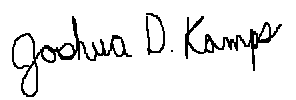 Joshua D. Kamps